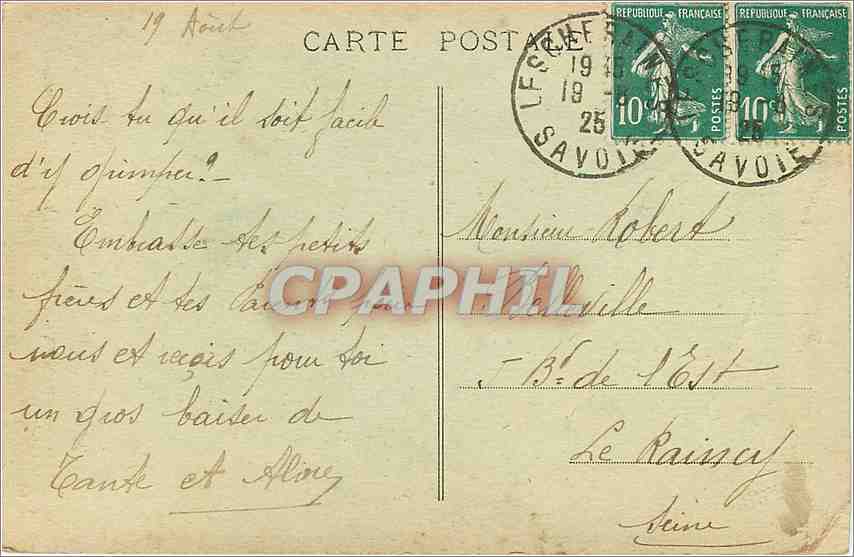 19 Août
CARTE POSTALE
RÉPUBLIQUE FRANÇAISE
10c
POSTES
RÉPUBLIQUE FRANÇAISE
10c
POSTES
LESCHERAINES
19 45
19 -8
25
SAVOIE
SAVOIE
25
Crois tu qu'il soit facile
d'y grimper ? -
Embrasse tes petits
frères et tes Parents pour
nous et reçois pour toi
un gros baiser de
Tante et Aline
CPAPHIL
Monsieur Robert
Belleville
5 Bd de l'Est
Le Raincy
Seine